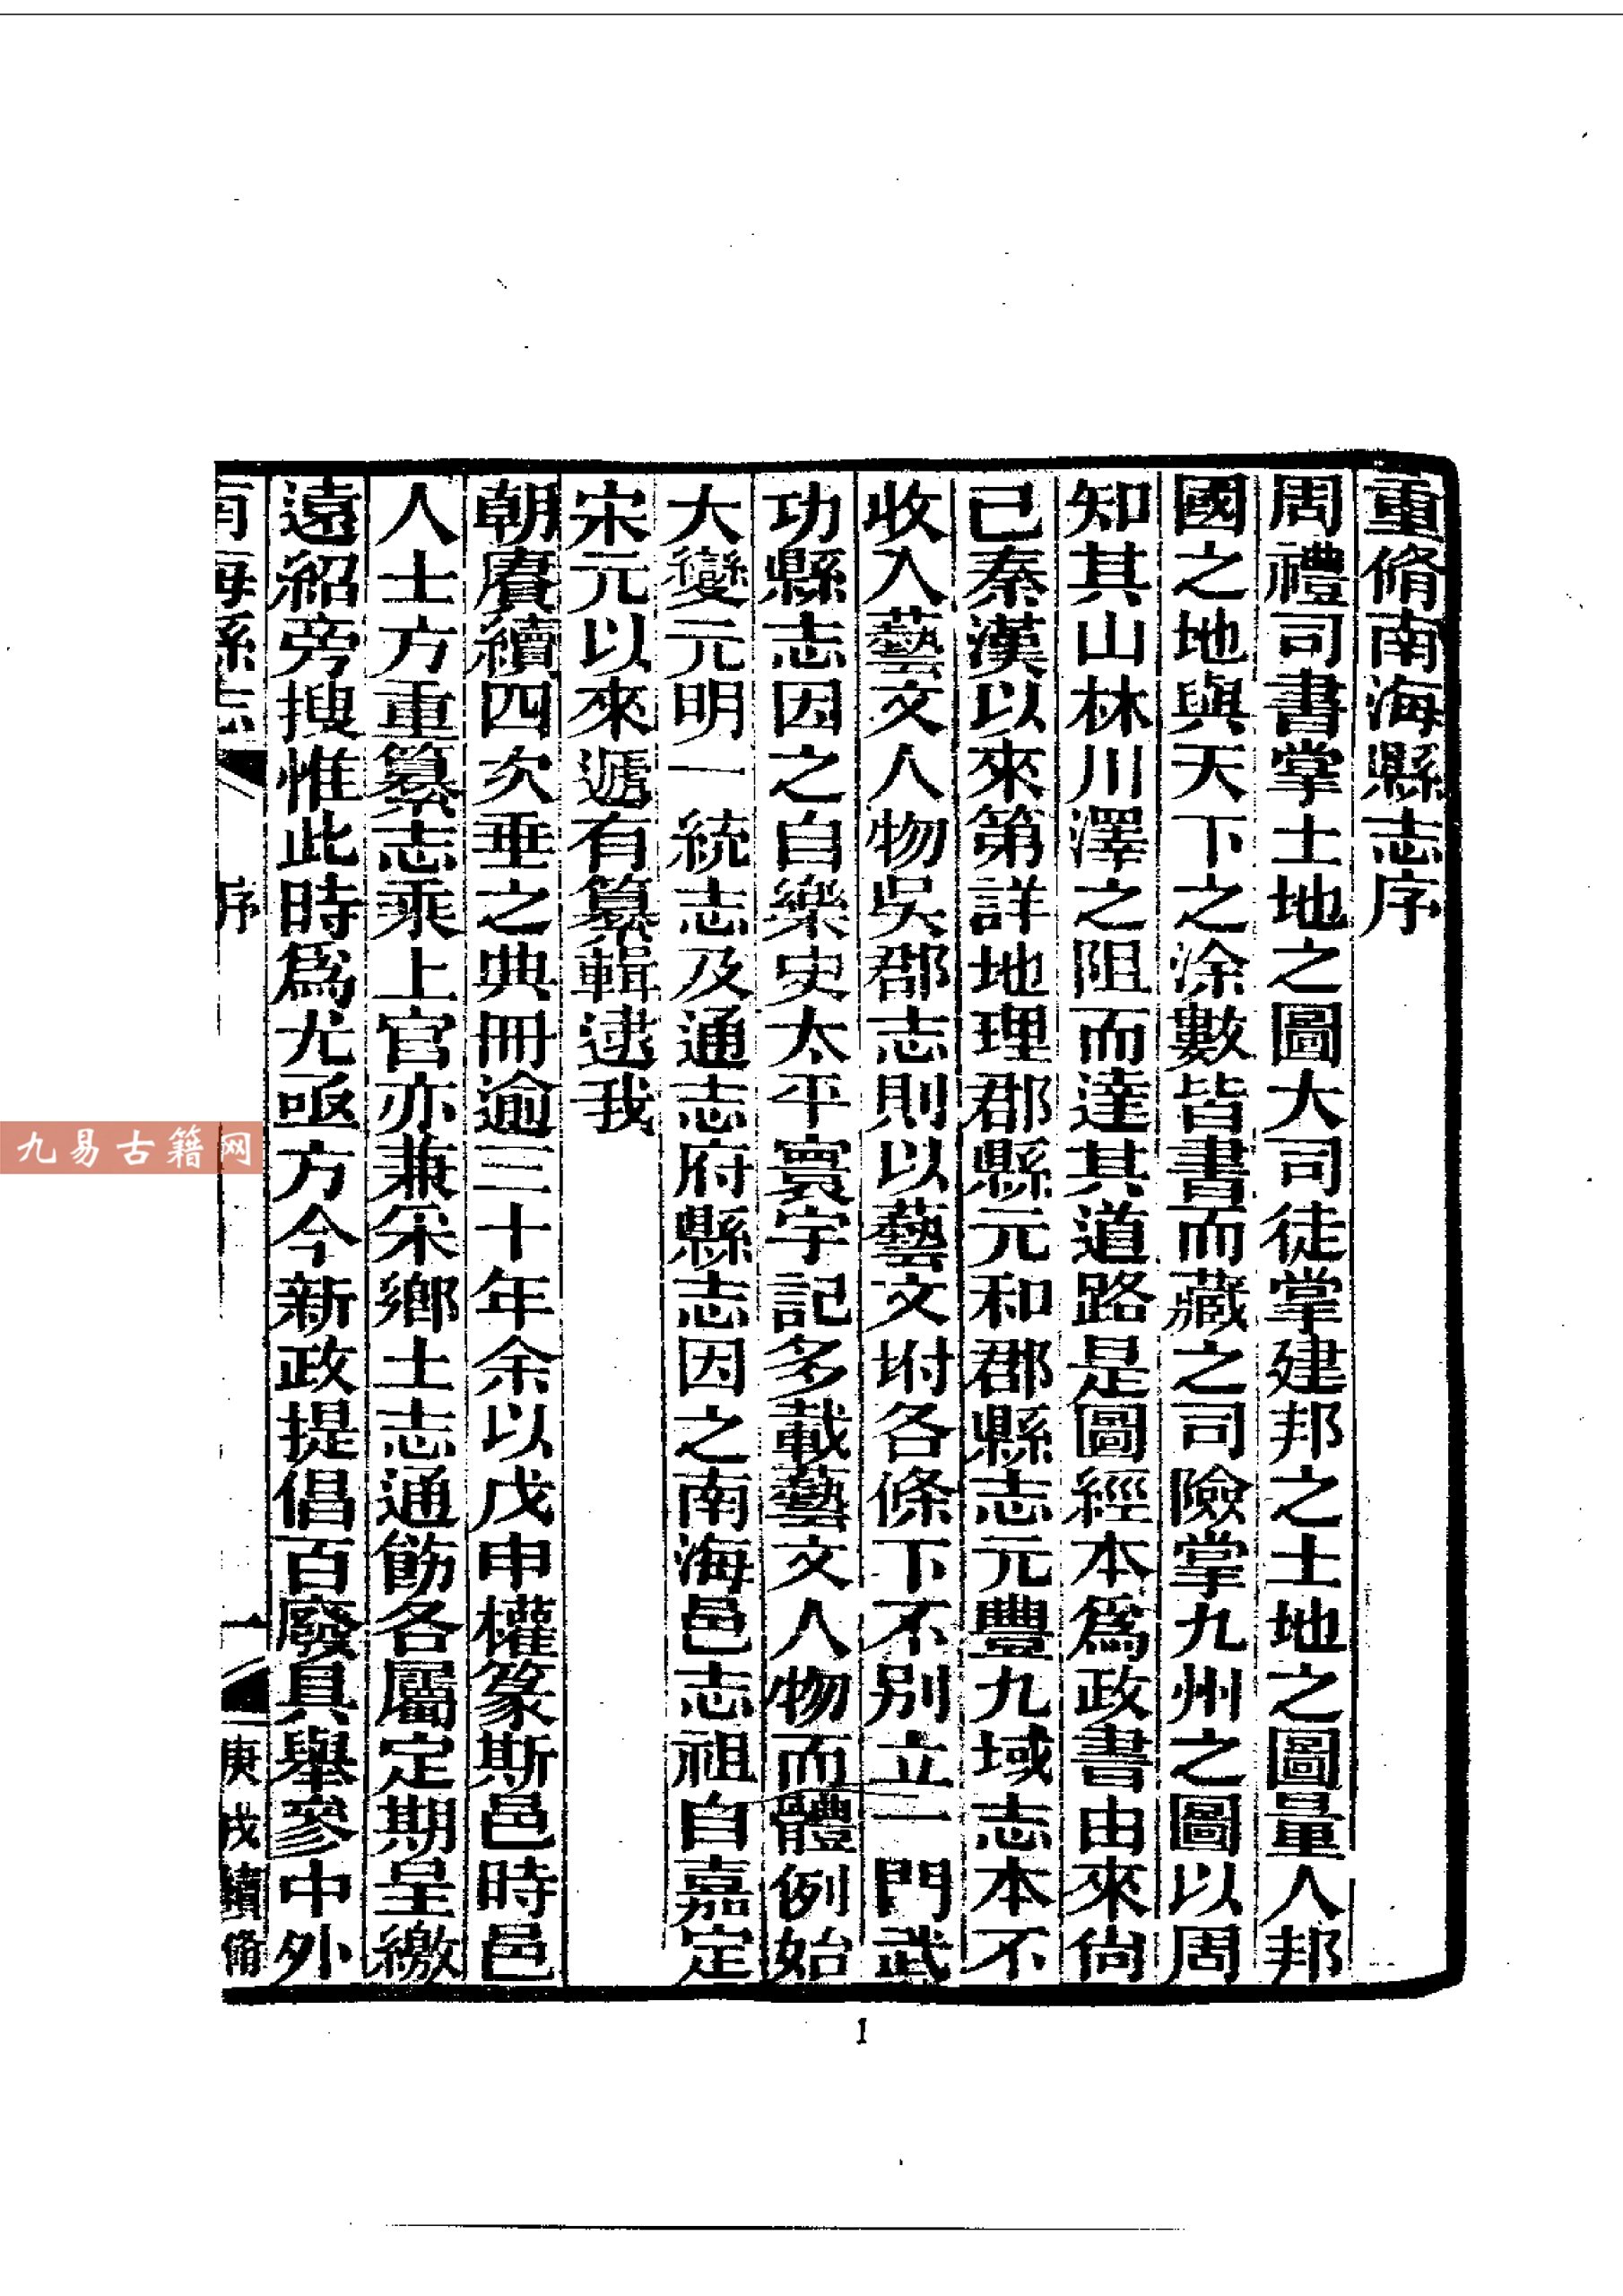 重脩南海縣志序
周禮司書掌土地之圖大司徒掌建邦之土地之圖量人邦
國之地與天下之涂數皆書而藏之司險掌九州之圖以周
知其山林川澤之阻而達其道路是圖經本爲政書由來尙
已秦漢以來第詳地理郡縣元和郡縣志元豐九域志本不
收入藝文人物吳郡志則以藝文坿各條下不別立一門武
功縣志因之自樂史太平寰宇記多載藝文人物而體例始
大變元明一統志及通志府縣志因之南海邑志祖自嘉定
宋元以來遞有纂輯逮我
朝賡續四次垂之典冊逾三十年余以戊申權篆斯邑時邑
人士方重纂志乘上官亦兼采鄉土志通飭各屬定期呈繳
遠紹旁搜惟此時爲尤亟方今新政提倡百廢具舉參中外
南海縣志
序
一
庚戌續脩
九易古籍网
1